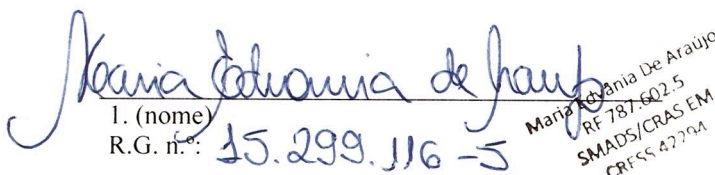 Maria Edvania de Araujo
1. (nome)
R.G. n.º: 15.299.116-5
Maria Edvânia De Araújo
RF 787.602.5
SMADS/CRAS EM
CRESS 42294